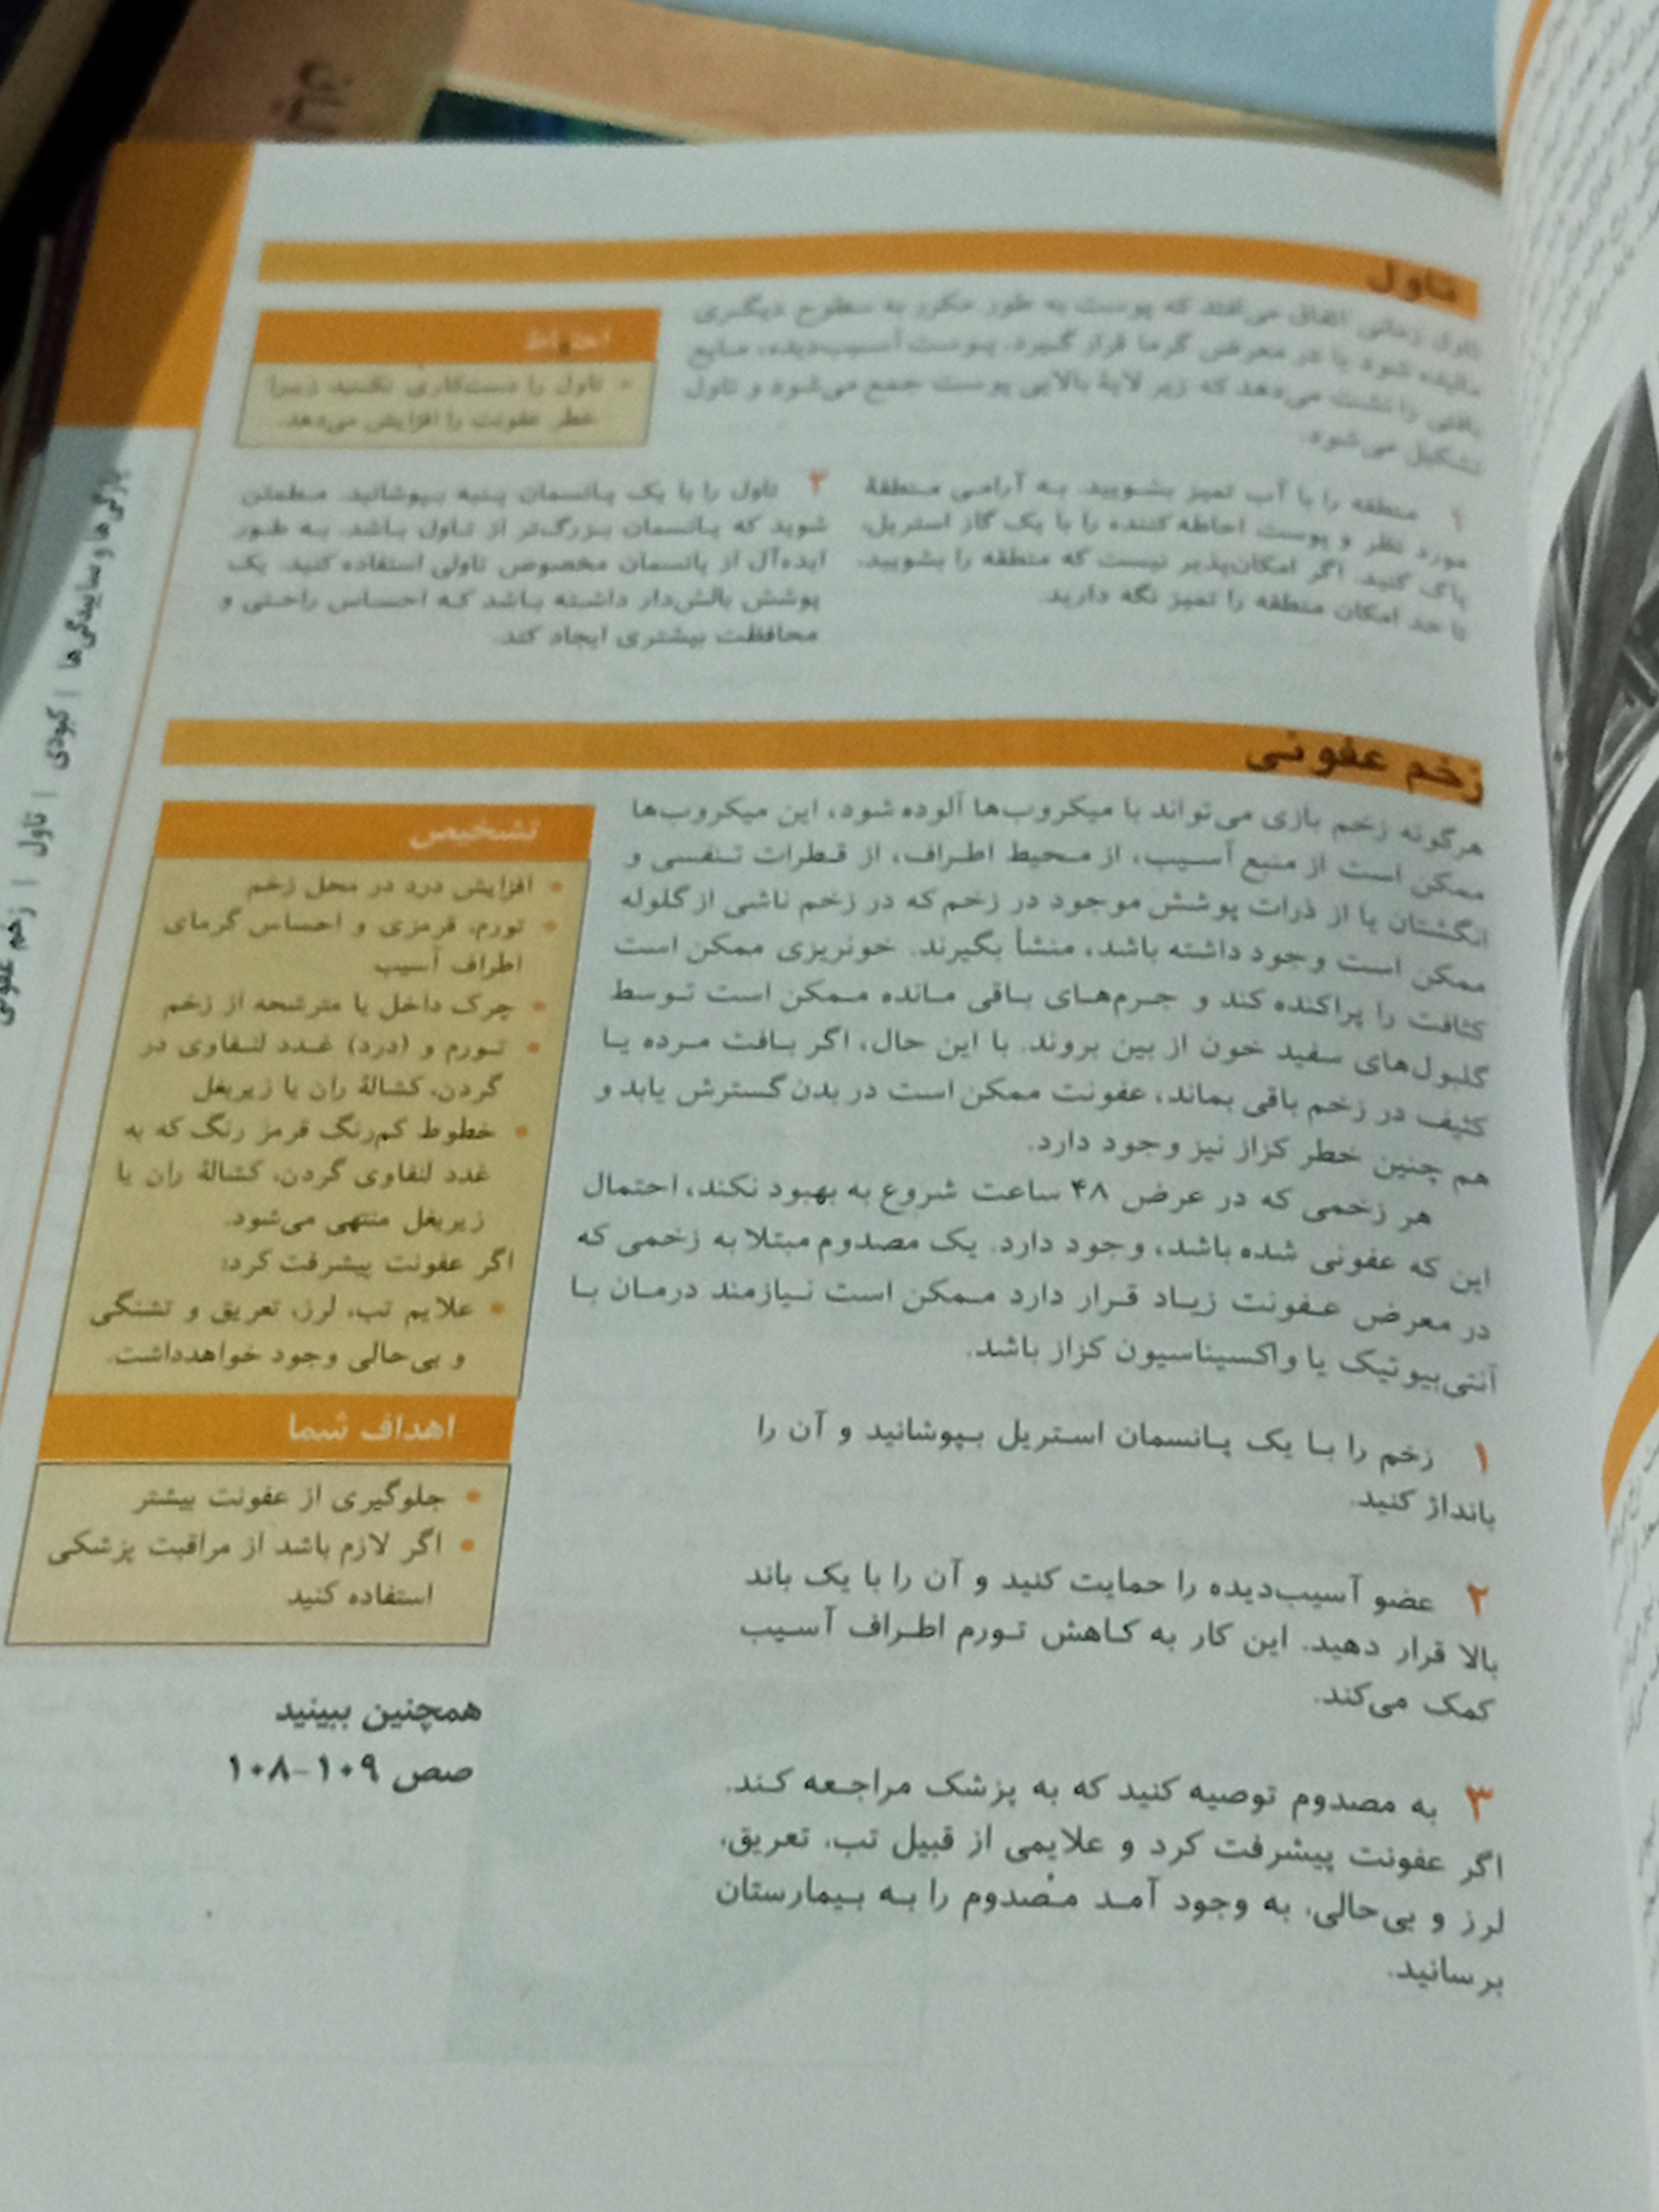 تاول
تاول زمانی اتفاق می‌افتد که پوست به طور مکرر به سطوح دیگری
مالیده شود یا در معرض گرما قرار گیرد. پوست آسیب‌دیده، مایع
بافتی را نشت می‌دهد که زیر لایهٔ بالایی پوست جمع می‌شود و تاول
تشکیل می‌شود.
احتیاط
• تاول را دست‌کاری نکنید زیرا
خطر عفونت را افزایش می‌دهد.
۱ منطقه را با آب تمیز بشویید. به آرامی منطقهٔ
مورد نظر و پوست احاطه کننده را با یک گاز استریل،
پاک کنید. اگر امکان‌پذیر نیست که منطقه را بشویید،
تا حد امکان منطقه را تمیز نگه دارید.
۲ تاول را با یک پانسمان پنبه بپوشانید. مطمئن
شوید که پانسمان بزرگ‌تر از تاول باشد. به طور
ایده‌آل از پانسمان مخصوص تاولی استفاده کنید. یک
پوشش بالش‌دار داشته باشد که احساس راحتی و
محافظت بیشتری ایجاد کند.
زخم عفونی
هرگونه زخم بازی می‌تواند با میکروب‌ها آلوده شود، این میکروب‌ها
ممکن است از منبع آسیب، از محیط اطراف، از قطرات تنفسی و
انگشتان یا از ذرات پوشش موجود در زخم که در زخم ناشی از گلوله
ممکن است وجود داشته باشد، منشأ بگیرند. خونریزی ممکن است
کثافت را پراکنده کند و جرم‌های باقی مانده ممکن است توسط
گلبول‌های سفید خون از بین بروند. با این حال، اگر بافت مرده یا
کثیف در زخم باقی بماند، عفونت ممکن است در بدن گسترش یابد و
هم چنین خطر کزاز نیز وجود دارد.
هر زخمی که در عرض ۴۸ ساعت شروع به بهبود نکند، احتمال
این که عفونی شده باشد، وجود دارد. یک مصدوم مبتلا به زخمی که
در معرض عفونت زیاد قرار دارد ممکن است نیازمند درمان با
آنتی‌بیوتیک یا واکسیناسیون کزاز باشد.
۱ زخم را با یک پانسمان استریل بپوشانید و آن را
بانداژ کنید.
۲ عضو آسیب‌دیده را حمایت کنید و آن را با یک باند
بالا قرار دهید. این کار به کاهش تورم اطراف آسیب
کمک می‌کند.
۳ به مصدوم توصیه کنید که به پزشک مراجعه کند.
اگر عفونت پیشرفت کرد و علایمی از قبیل تب، تعریق،
لرز و بی‌حالی، به وجود آمد مصدوم را به بیمارستان
برسانید.
تشخیص
• افزایش درد در محل زخم
• تورم، قرمزی و احساس گرمای
اطراف آسیب
• چرک داخل یا مترشحه از زخم
• تورم و (درد) غدد لنفاوی در
گردن، کشالهٔ ران یا زیربغل
• خطوط کم‌رنگ قرمز رنگ که به
غدد لنفاوی گردن، کشالهٔ ران یا
زیربغل منتهی می‌شود.
اگر عفونت پیشرفت کرد:
• علایم تب، لرز، تعریق و تشنگی
و بی‌حالی وجود خواهدداشت.
اهداف شما
• جلوگیری از عفونت بیشتر
• اگر لازم باشد از مراقبت پزشکی
استفاده کنید
همچنین ببینید
صص ۱۰۹-۱۰۸
ها و ساییدگی‌ها | کبودی | تاول | زخم عفونی